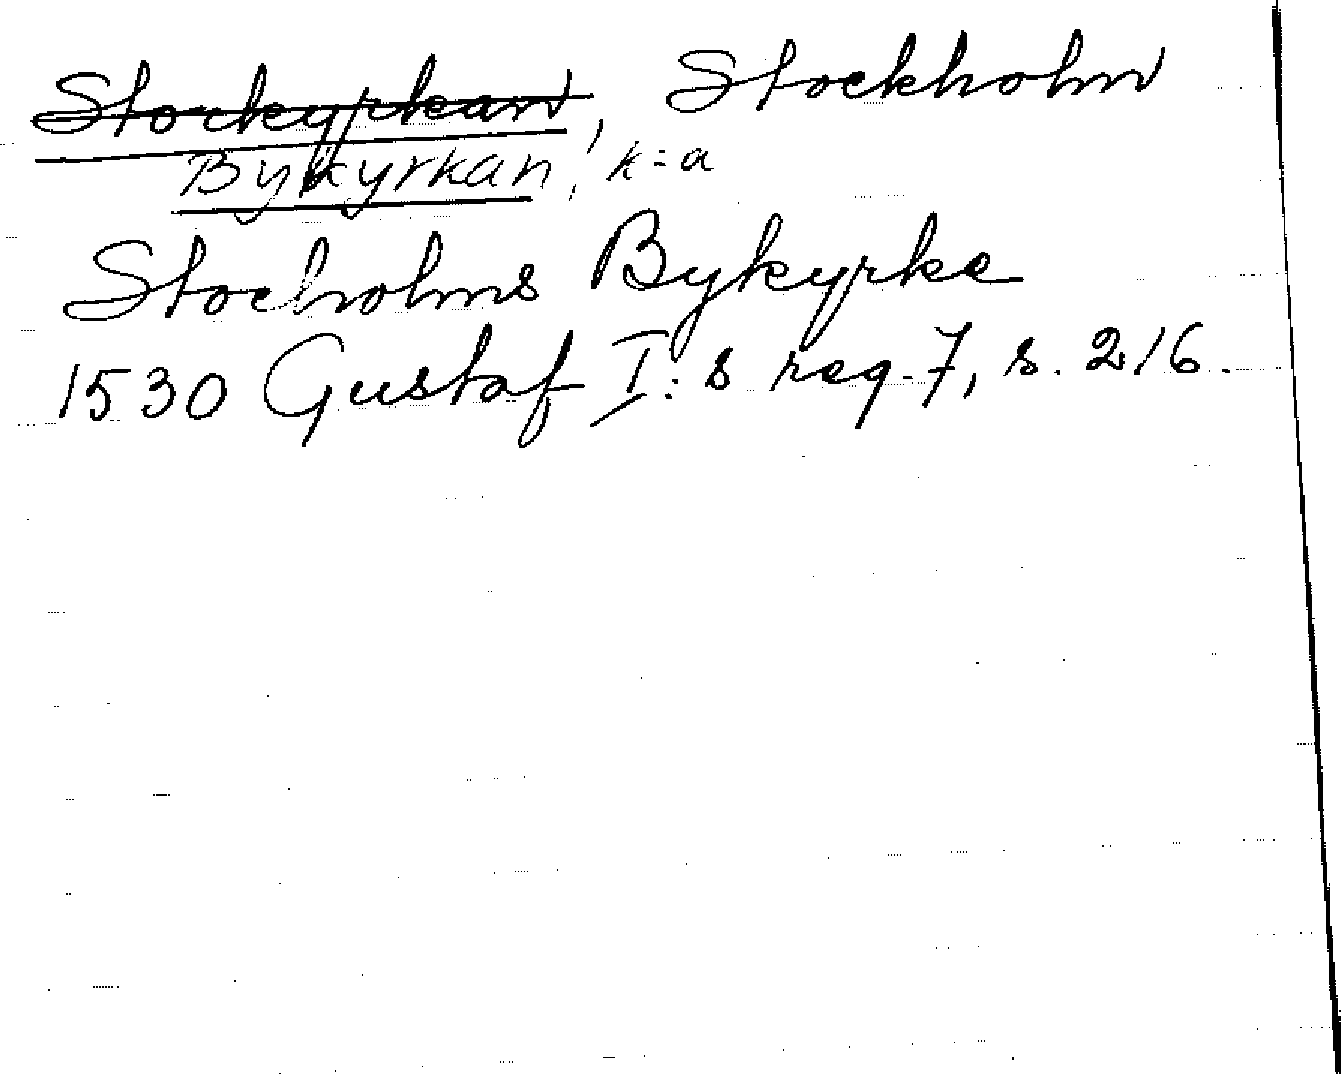 Storkyrkan, Stockholm
Bykyrkan! k=a
Stocholms Bykyrke
1530 Gustaf I:s reg. 7, s. 216.